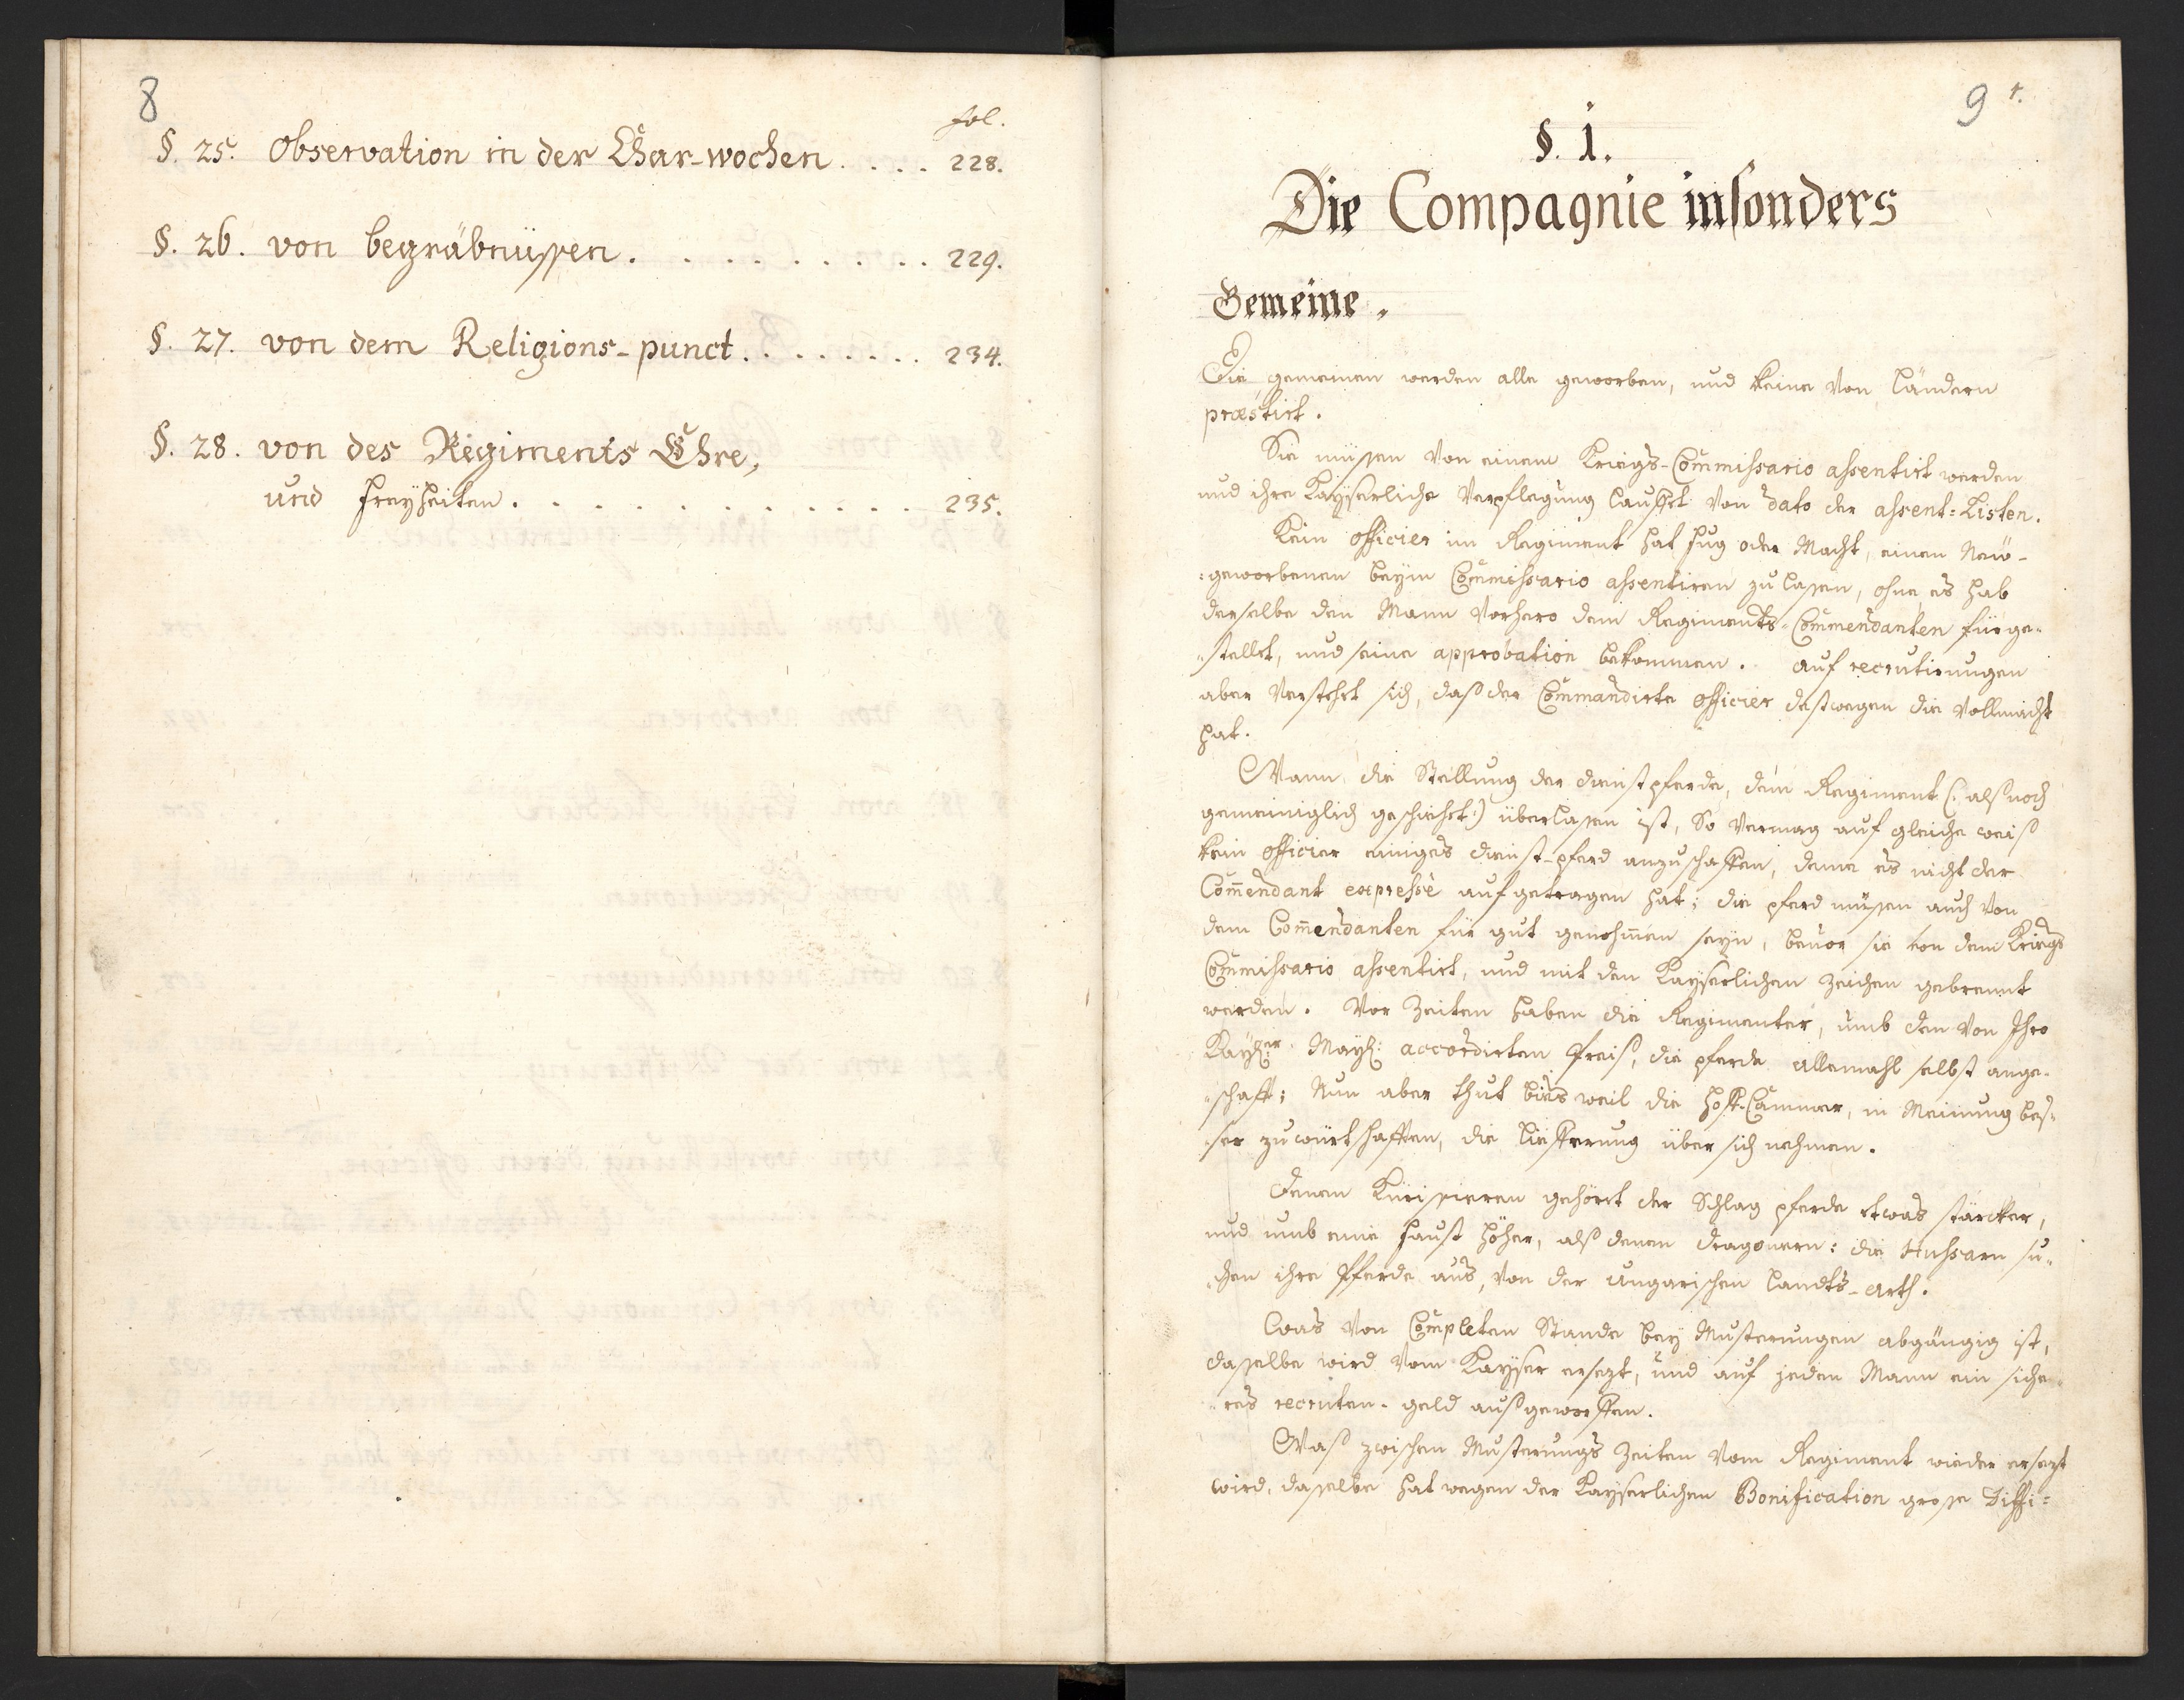 8
fol.
§. 25. Observation in der Char-wochen . . . . 228.
§. 26. von begräbnüssen . . . . . . . . . 229.
§. 27. von dem Religions-punct . . . . . . . . 234.
§. 28. von des Regiments Ehre,
und Freyheiten . . . . . . . . . . . 235.
9 1.
§. 1.
Die Compagnie insonders
Gemeine.
Die gemeinen werden alle geworben, und keine von Ländern
præstirt.
Sie müssen von einem Kriegs-Commissario assentirt werden
und ihre Kayserliche Verpflegung lauffet von dato der assent-Listen.
Kein officier im Regiment hat fug oder Macht, einen Neü-
=geworbenen beym Commissario assentiren zu lassen, ohne es hab
derselbe den Mann vorhero dem Regiments-Commendanten fürge-
=stellet, und seine approbation bekommen. auf recrutirungen
aber verstehet sich, daß der Commandirte officier deßwegen die Vollmacht
hat.
Wann die Stellung der dienstpferde, dem Regiment (: alß noch
gemeiniglich geschiehet :) überlassen ist, So vermag auf gleiche weiß
kein officier einiges dienst-pferd anzuschaffen, deme es nicht der
Com̄endant expressè aufgetragen hat; die pferd müssen auch von
dem Com̄endanten für gut genohm̄en seyn, bevor sie von dem Kriegs
Commissario assentirt, und mit den Kayserlichen Zeichen gebrennt
werden. Vor Zeiten haben die Regimenter, umb den von Ihro
Kayl:er Mayl: accordirten Preiß, die pferde allemahl selbst ange-
=schafft; Nun aber thut bisweil die Hoff-Cammer, in Meinung bes-
=ser zu würtschafften, die liefferung über sich nehmen.
Denen Kürissieren gehört der Schlag pferde etwas stärcker,
und umb eine faust höher, alß denen dragonern: die Hussarn su-
=chen ihre Pferde aus, von der Ungarischen Landts-Arth.
Was von Completen Stande bey Musterungen abgängig ist,
dasselbe wird vom Kayser ersezt, und auf jeden Mann ein siche-
=res recruten-geld außgeworffen.
Waß zwischen Musterungs Zeiten vom Regiment wieder ersezt
wird, dasselbe hat wegen der Kayserlichen Bonification grosse Diffi=